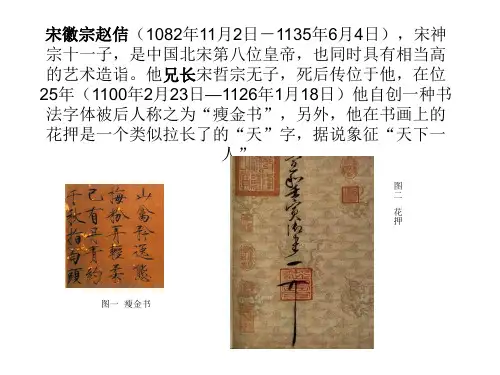 宋徽宗赵佶（1082年11月2日－1135年6月4日），宋神
宗十一子，是中国北宋第八位皇帝，也同时具有相当高
的艺术造诣。他兄长宋哲宗无子，死后传位于他，在位
25年（1100年2月23日—1126年1月18日）他自创一种书
法字体被后人称之为“瘦金书”，另外，他在书画上的
花押是一个类似拉长了的“天”字，据说象征“天下一
人”
山禽矜逸態
梅粉弄輕柔
已有丹青約
千秋指白頭
图一 瘦金书
宣和壬寅御
图二 花押